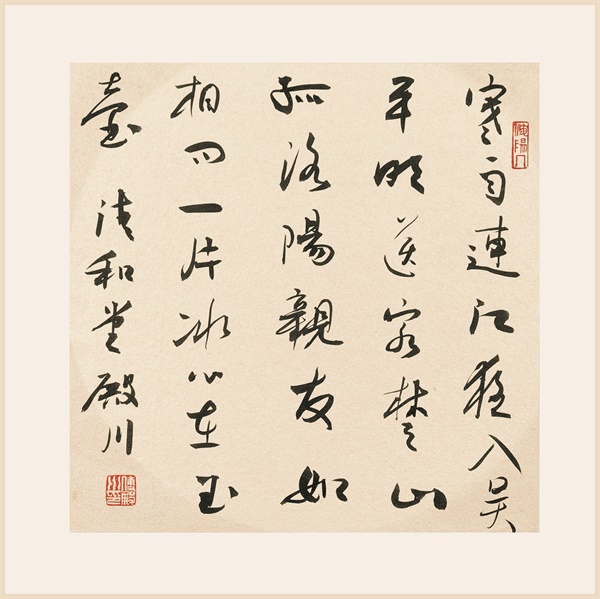 寒雨連江夜入吴
平明送客楚山
孤洛陽親友如
相问一片冰心在玉
壺 清和堂殿川